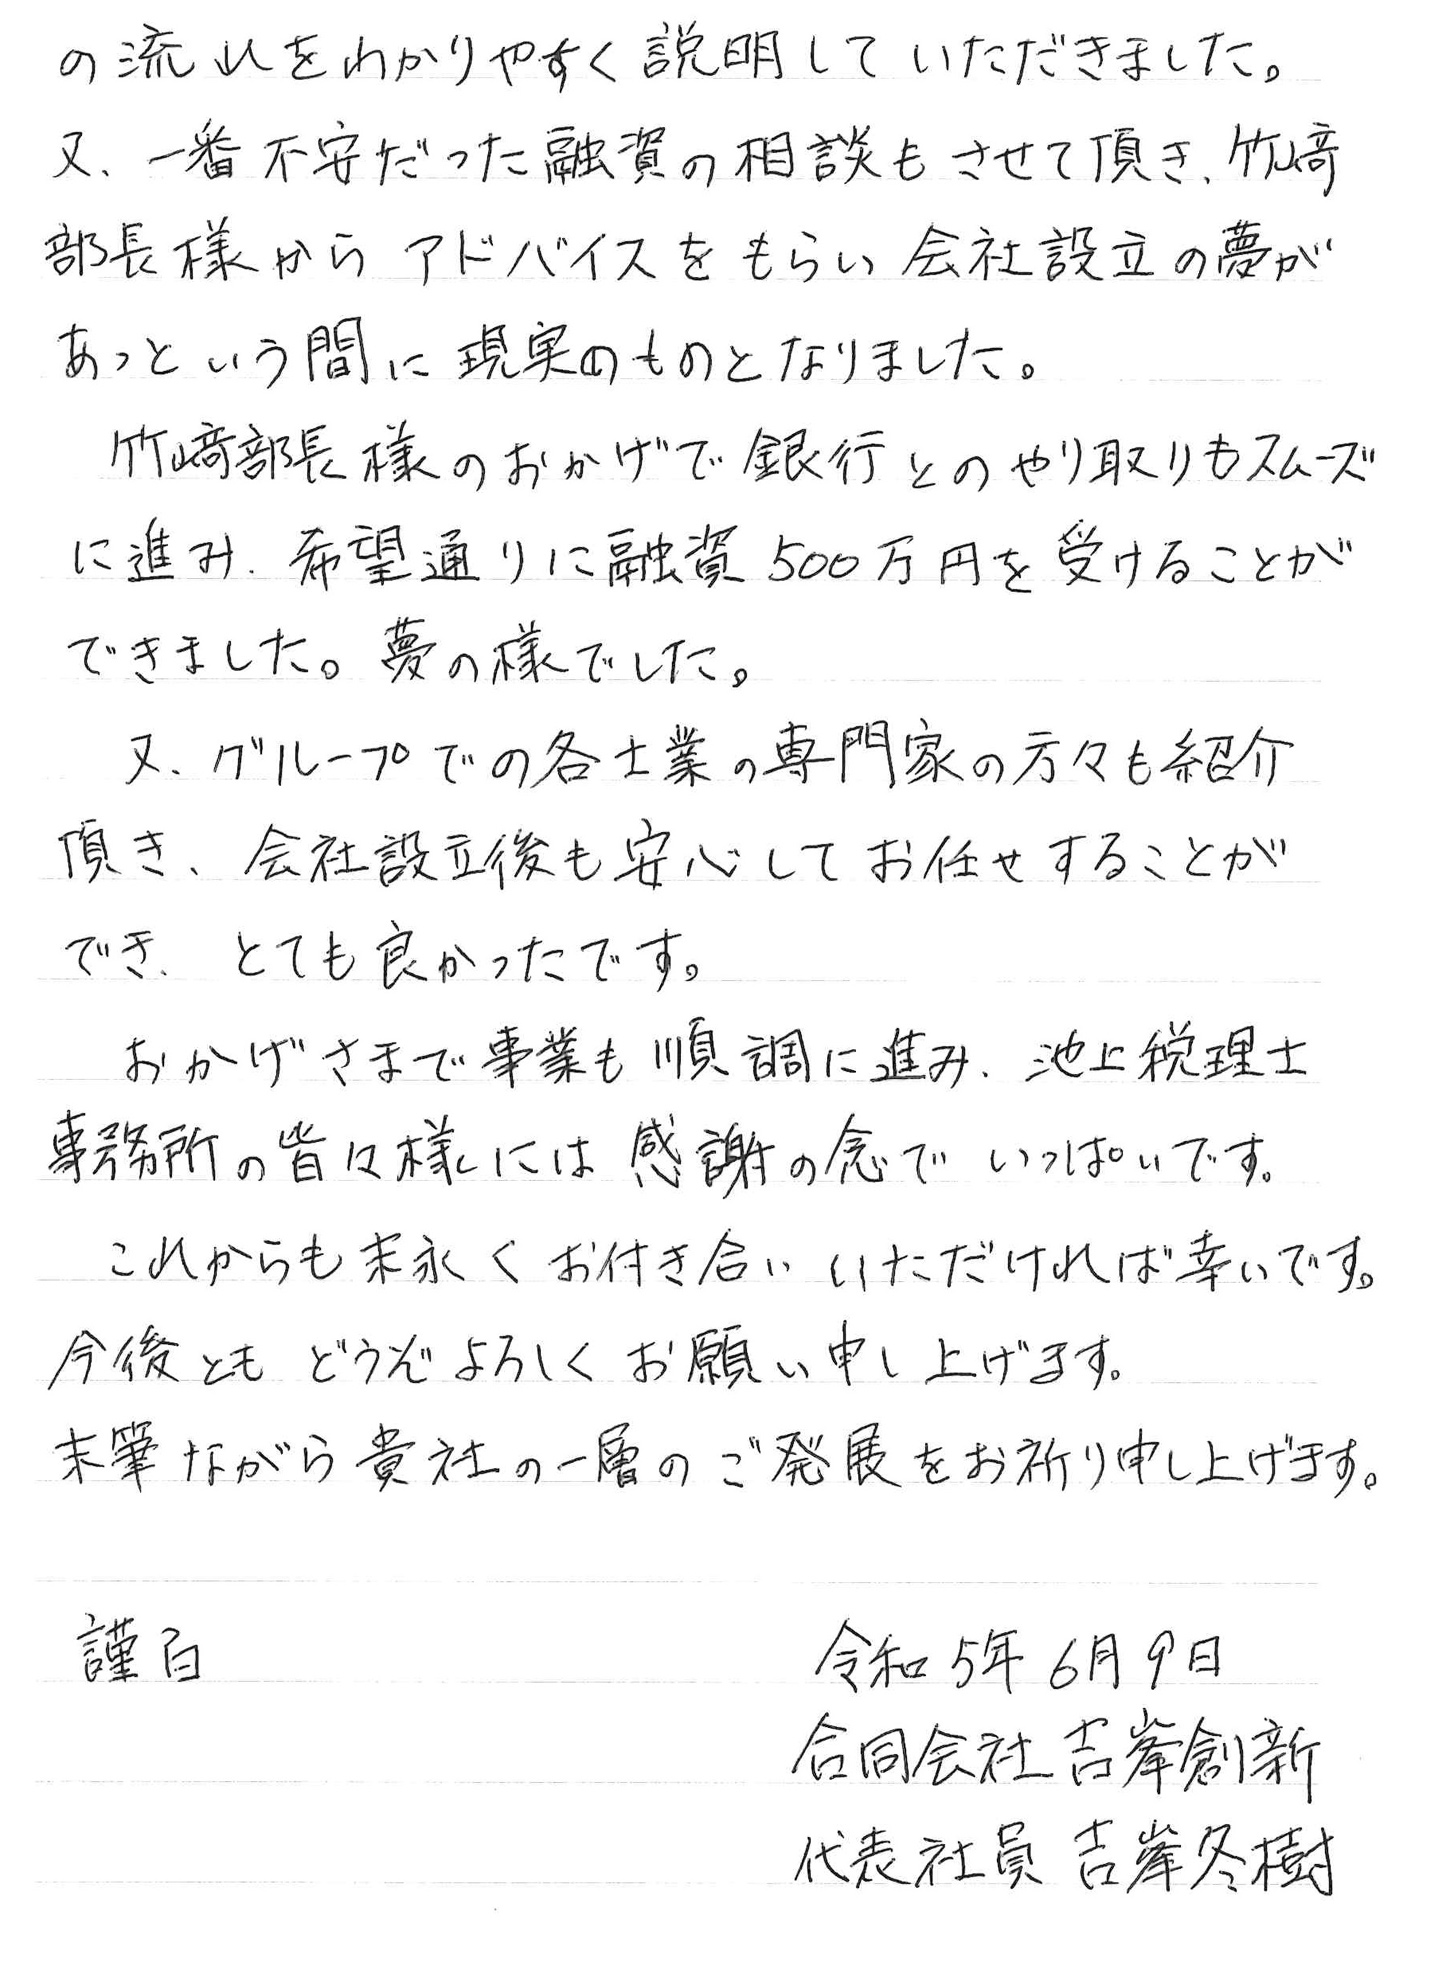 の流れをわかりやすく説明していただきました。
又、一番不安だった融資の相談もさせて頂き、竹﨑
部長様からアドバイスをもらい会社設立の夢が
あっという間に現実のものとなりました。
竹﨑部長様のおかげで銀行とのやり取りもスムーズ
に進み、希望通りに融資500万円を受けることが
できました。夢の様でした。
又、グループでの各士業の専門家の方々も紹介
頂き、会社設立後も安心してお任せすることが
でき、とても良かったです。
おかげさまで事業も順調に進み、池上税理士
事務所の皆々様には感謝の念でいっぱいです。
これからも末永くお付き合いいただければ幸いです。
今後ともどうぞよろしくお願い申し上げます。
末筆ながら貴社の一層のご発展をお祈り申し上げます。
謹白
令和5年6月9日
合同会社吉峯創新
代表社員 吉峯冬樹